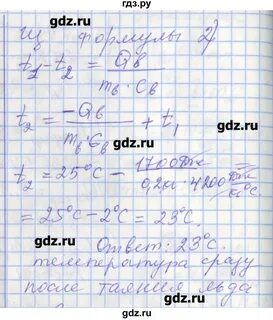 из формулы 2)
t₁ - t₂ = Qв / (mв · Cв)
t₂ = -Qв / (mв · Cв) + t₁
t₂ = 25°C - 1700 Дж / (0,2кг · 4200 Дж/кг°C)
= 25°C - 2°C = 23°C.
Ответ: 23°C.
температура сразу
после таяния льда